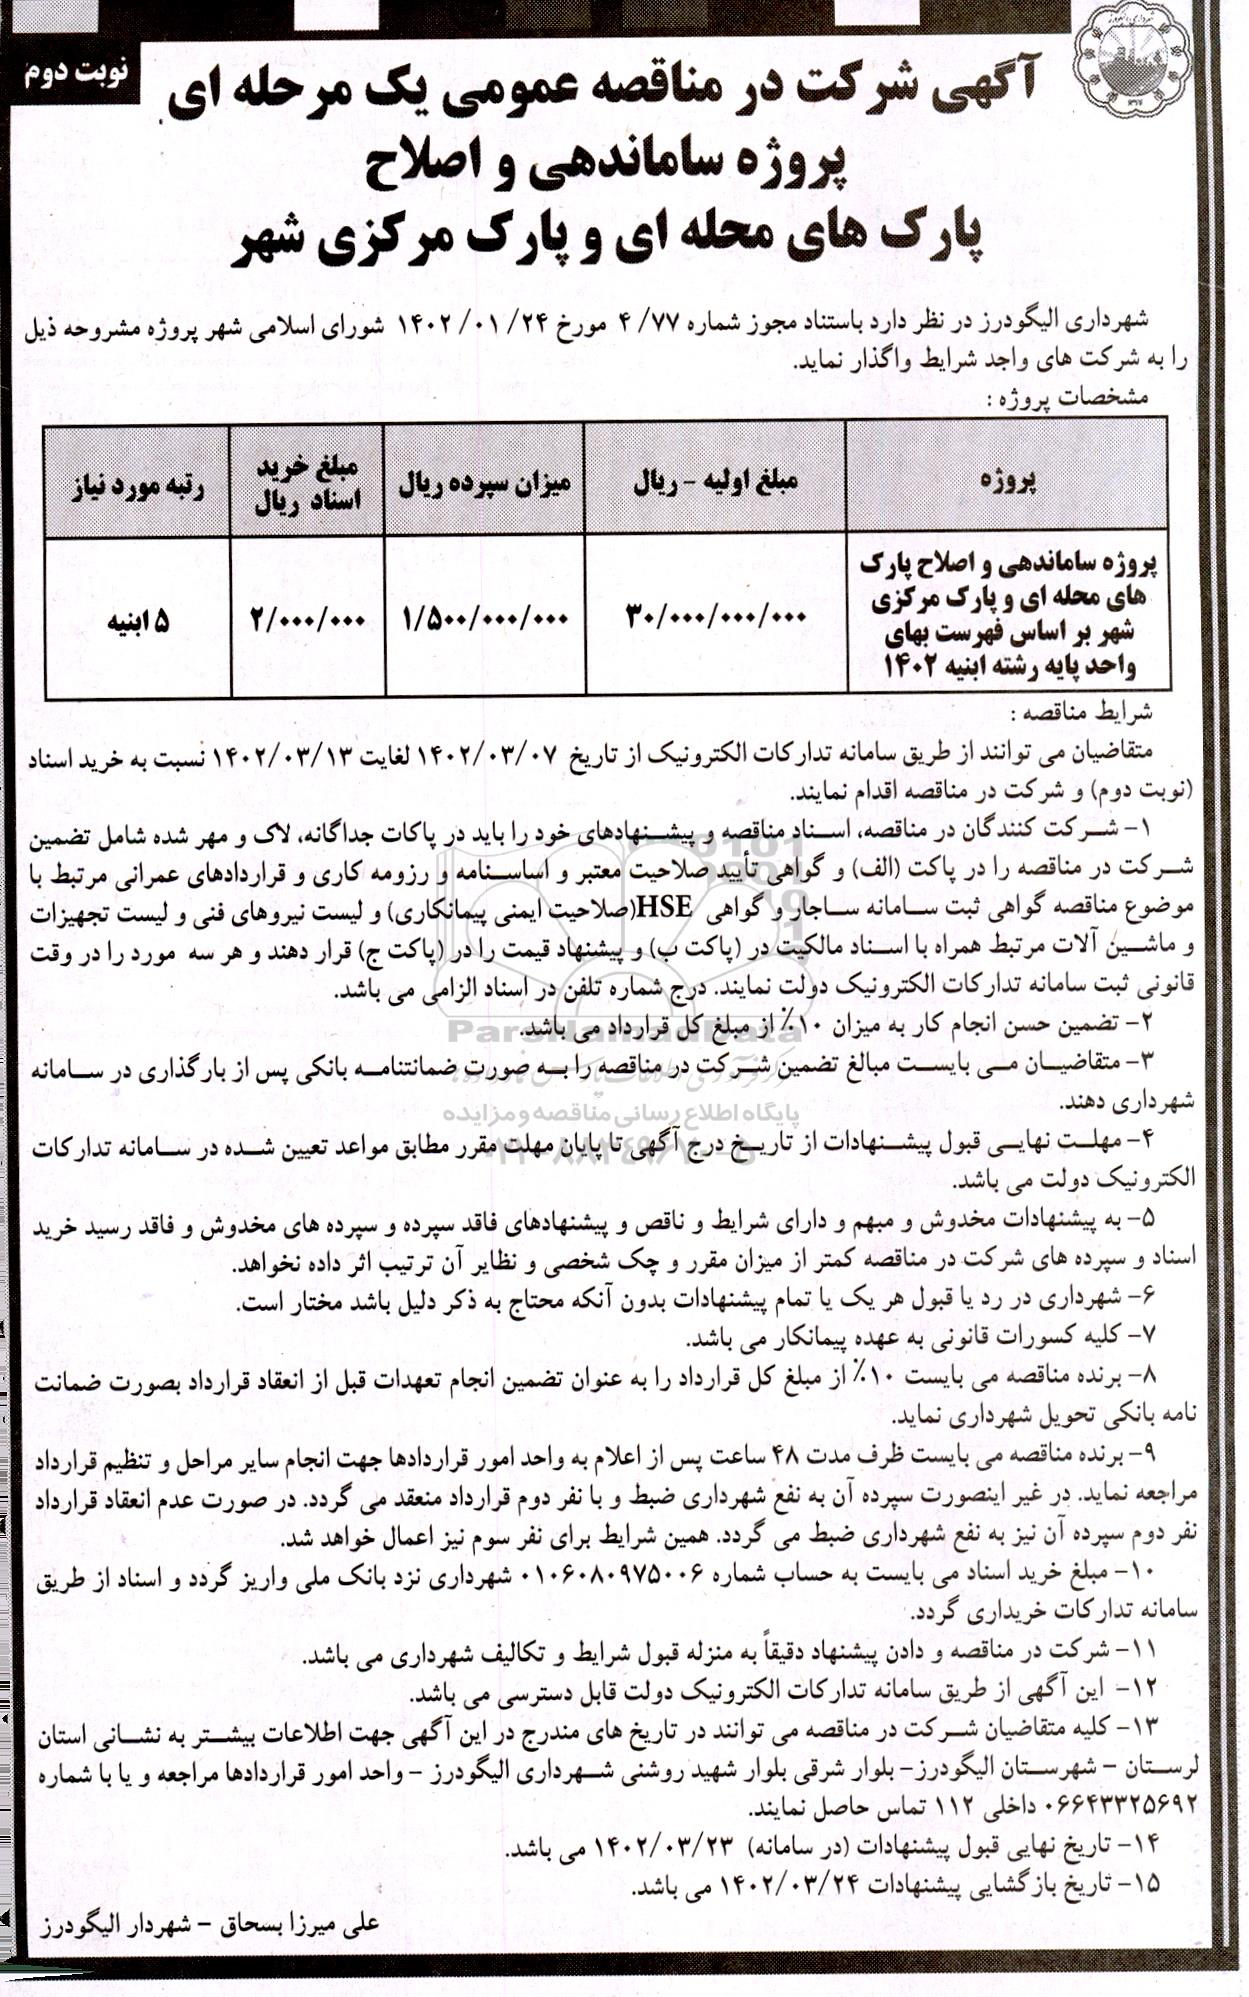 نوبت دوم
آگهی شرکت در مناقصه عمومی یک مرحله ای
پروژه ساماندهی و اصلاح
پارک های محله ای و پارک مرکزی شهر
شهرداری الیگودرز در نظر دارد باستناد مجوز شماره ۷۷/ ۴ مورخ ۲۴/ ۰۱/ ۱۴۰۲ شورای اسلامی شهر پروژه مشروحه ذیل
را به شرکت های واجد شرایط واگذار نماید.
مشخصات پروژه :
پروژه
مبلغ اولیه - ریال
میزان سپرده ریال
مبلغ خرید
اسناد ریال
رتبه مورد نیاز
پروژه ساماندهی و اصلاح پارک
های محله ای و پارک مرکزی
شهر بر اساس فهرست بهای
واحد پایه رشته ابنیه ۱۴۰۲
۳۰/۰۰۰/۰۰۰/۰۰۰
۱/۵۰۰/۰۰۰/۰۰۰
۲/۰۰۰/۰۰۰
۵ ابنیه
شرایط مناقصه :
متقاضیان می توانند از طریق سامانه تدارکات الکترونیک از تاریخ ۱۴۰۲/۰۳/۰۷ لغایت ۱۴۰۲/۰۳/۱۳ نسبت به خرید اسناد
(نوبت دوم) و شرکت در مناقصه اقدام نمایند.
۱- شرکت کنندگان در مناقصه، اسناد مناقصه و پیشنهادهای خود را باید در پاکات جداگانه، لاک و مهر شده شامل تضمین
شرکت در مناقصه را در پاکت (الف) و گواهی تأیید صلاحیت معتبر و اساسنامه و رزومه کاری و قراردادهای عمرانی مرتبط با
موضوع مناقصه گواهی ثبت سامانه ساجار و گواهی HSE(صلاحیت ایمنی پیمانکاری) و لیست نیروهای فنی و لیست تجهیزات
و ماشین آلات مرتبط همراه با اسناد مالکیت در (پاکت ب) و پیشنهاد قیمت را در (پاکت ج) قرار دهند و هر سه مورد را در وقت
قانونی ثبت سامانه تدارکات الکترونیک دولت نمایند. درج شماره تلفن در اسناد الزامی می باشد.
۲- تضمین حسن انجام کار به میزان ۱۰٪ از مبلغ کل قرارداد می باشد.
ParsNamadData
۳- متقاضیان می بایست مبالغ تضمین شرکت در مناقصه را به صورت ضمانتنامه بانکی پس از بارگذاری در سامانه
شهرداری دهند.
پایگاه اطلاع رسانی مناقصه و مزایده
۴- مهلت نهایی قبول پیشنهادات از تاریخ درج آگهی تا پایان مهلت مقرر مطابق مواعد تعیین شده در سامانه تدارکات
الکترونیک دولت می باشد.
۵- به پیشنهادات مخدوش و مبهم و دارای شرایط و ناقص و پیشنهادهای فاقد سپرده و سپرده های مخدوش و فاقد رسید خرید
اسناد و سپرده های شرکت در مناقصه کمتر از میزان مقرر و چک شخصی و نظایر آن ترتیب اثر داده نخواهد.
۶- شهرداری در رد یا قبول هر یک یا تمام پیشنهادات بدون آنکه محتاج به ذکر دلیل باشد مختار است.
۷- کلیه کسورات قانونی به عهده پیمانکار می باشد.
۸- برنده مناقصه می بایست ۱۰٪ از مبلغ کل قرارداد را به عنوان تضمین انجام تعهدات قبل از انعقاد قرارداد بصورت ضمانت
نامه بانکی تحویل شهرداری نماید.
۹- برنده مناقصه می بایست ظرف مدت ۴۸ ساعت پس از اعلام به واحد امور قراردادها جهت انجام سایر مراحل و تنظیم قرارداد
مراجعه نماید. در غیر اینصورت سپرده آن به نفع شهرداری ضبط و با نفر دوم قرارداد منعقد می گردد. در صورت عدم انعقاد قرارداد
نفر دوم سپرده آن نیز به نفع شهرداری ضبط می گردد. همین شرایط برای نفر سوم نیز اعمال خواهد شد.
۱۰- مبلغ خرید اسناد می بایست به حساب شماره ۰۱۰۶۰۸۰۹۷۵۰۰۶ شهرداری نزد بانک ملی واریز گردد و اسناد از طریق
سامانه تدارکات خریداری گردد.
۱۱- شرکت در مناقصه و دادن پیشنهاد دقیقاً به منزله قبول شرایط و تکالیف شهرداری می باشد.
۱۲- این آگهی از طریق سامانه تدارکات الکترونیک دولت قابل دسترسی می باشد.
۱۳- کلیه متقاضیان شرکت در مناقصه می توانند در تاریخ های مندرج در این آگهی جهت اطلاعات بیشتر به نشانی استان
لرستان - شهرستان الیگودرز- بلوار شرقی بلوار شهید روشنی شهرداری الیگودرز - واحد امور قراردادها مراجعه و یا با شماره
۰۶۶۴۳۳۲۵۶۹۲ داخلی ۱۱۲ تماس حاصل نمایند.
۱۴- تاریخ نهایی قبول پیشنهادات (در سامانه) ۱۴۰۲/۰۳/۲۳ می باشد.
۱۵- تاریخ بازگشایی پیشنهادات ۱۴۰۲/۰۳/۲۴ می باشد.
علی میرزا بسحاق - شهردار الیگودرز